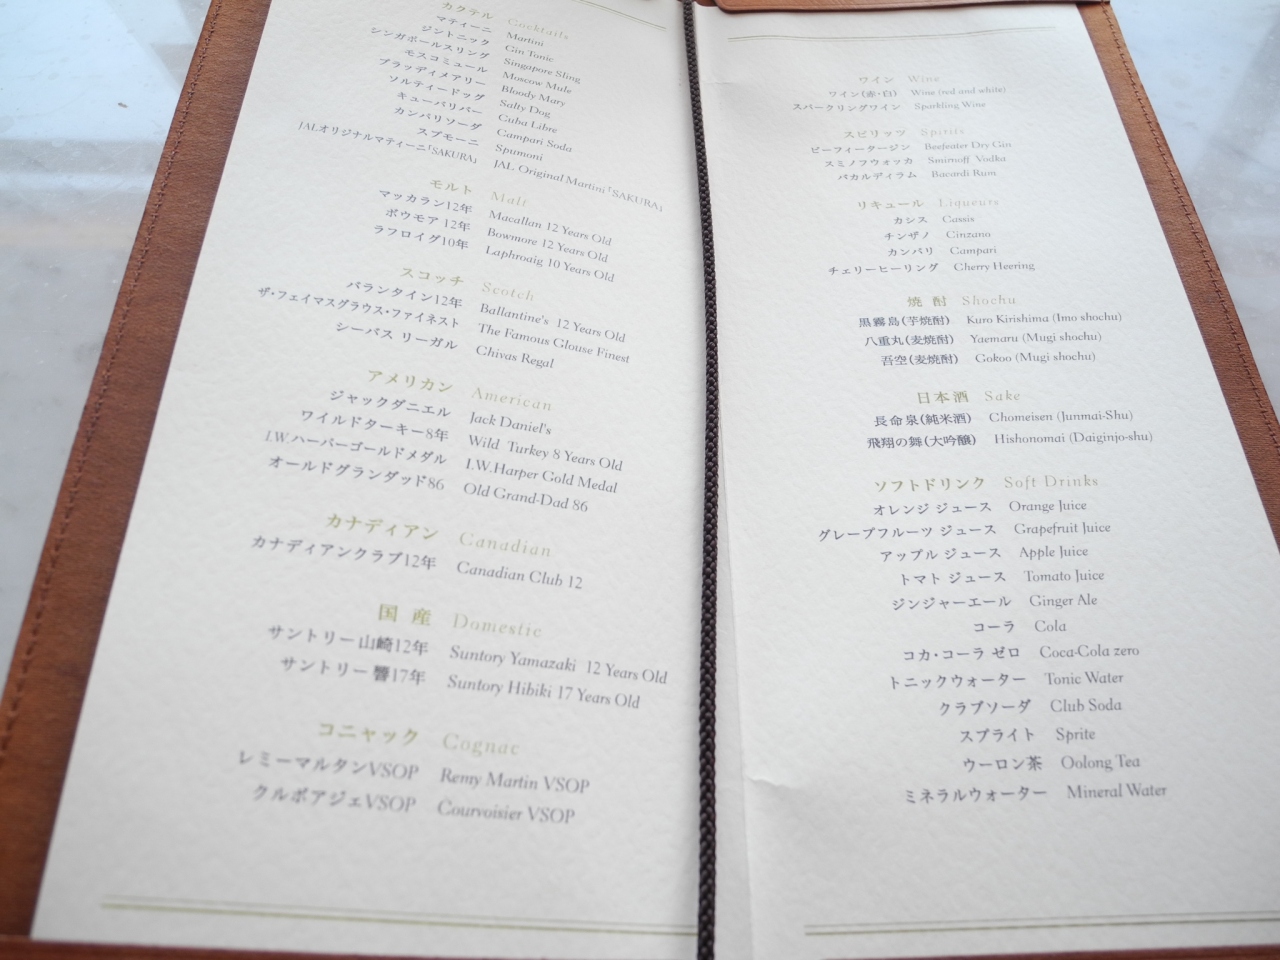 カクテル Cocktails
マティーニ Martini
ジントニック Gin Tonic
シンガポールスリング Singapore Sling
モスコミュール Moscow Mule
ブラッディメアリー Bloody Mary
ソルティードッグ Salty Dog
キューバリバー Cuba Libre
カンパリソーダ Campari Soda
スプモーニ Spumoni
JALオリジナルマティーニ「SAKURA」 JAL Original Martini「SAKURA」
モルト Malt
マッカラン12年 Macallan 12 Years Old
ボウモア 12年 Bowmore 12 Years Old
ラフロイグ10年 Laphroaig 10 Years Old
スコッチ Scotch
バランタイン12年 Ballantine's 12 Years Old
ザ・フェイマスグラウス・ファイネスト The Famous Glouse Finest
シーバス リーガル Chivas Regal
アメリカン American
ジャックダニエル Jack Daniel's
ワイルドターキー8年 Wild Turkey 8 Years Old
I.W.ハーパーゴールドメダル I.W.Harper Gold Medal
オールドグランダッド86 Old Grand-Dad 86
カナディアン Canadian
カナディアンクラブ12年 Canadian Club 12
国 産 Domestic
サントリー 山崎12年 Suntory Yamazaki 12 Years Old
サントリー 響17年 Suntory Hibiki 17 Years Old
コニャック Cognac
レミーマルタンVSOP Remy Martin VSOP
クルボアジェVSOP Courvoisier VSOP
ワイン Wine
ワイン(赤・白) Wine (red and white)
スパークリングワイン Sparkling Wine
スピリッツ Spirits
ビーフィータージン Beefeater Dry Gin
スミノフウォッカ Smirnoff Vodka
バカルディラム Bacardi Rum
リキュール Liqueurs
カシス Cassis
チンザノ Cinzano
カンパリ Campari
チェリーヒーリング Cherry Heering
焼 酎 Shochu
黒霧島(芋焼酎) Kuro Kirishima (Imo shochu)
八重丸(麦焼酎) Yaemaru (Mugi shochu)
吾空(麦焼酎) Gokoo (Mugi shochu)
日本酒 Sake
長命泉(純米酒) Chomeisen (Junmai-Shu)
飛翔の舞(大吟醸) Hishonomai (Daiginjo-shu)
ソフトドリンク Soft Drinks
オレンジ ジュース Orange Juice
グレープフルーツ ジュース Grapefruit Juice
アップル ジュース Apple Juice
トマト ジュース Tomato Juice
ジンジャーエール Ginger Ale
コーラ Cola
コカ・コーラ ゼロ Coca-Cola zero
トニックウォーター Tonic Water
クラブソーダ Club Soda
スプライト Sprite
ウーロン茶 Oolong Tea
ミネラルウォーター Mineral Water